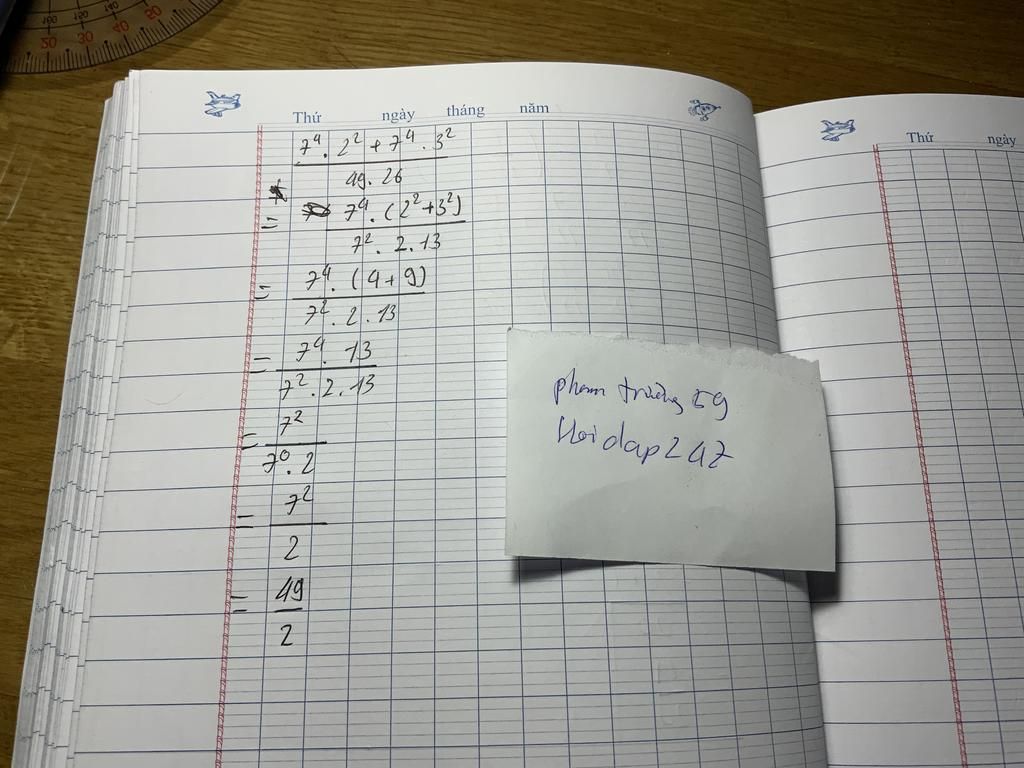 160 150 140
20 30 40 50
Thứ ngày tháng năm
7⁴ . 2² + 7⁴ . 3²
49 . 26
= 7⁴ . (2² + 3²)
7² . 2 . 13
= 7⁴ . (4 + 9)
7² . 2 . 13
= 7⁴ . 13
7² . 2 . 13
= 7²
7⁰ . 2
= 7²
2
= 49
2
phamtrường59
Hoidap247
Thứ ngày